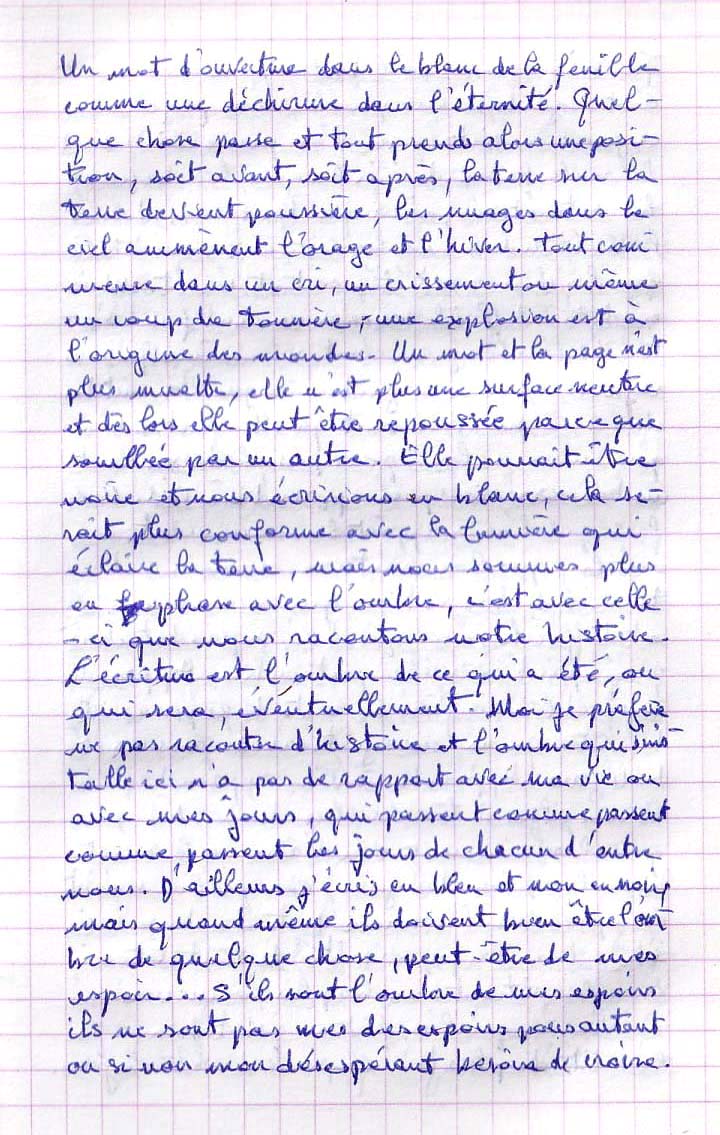 Un mot d'ouverture dans le blanc de la feuille
comme une déchirure dans l'éternité. Quel-
que chose passe et tout prends alors une posi-
tion, soit avant, soit après, la terre sur la
terre devient poussière, les nuages dans le
ciel ammènent l'orage et l'hiver. Tout com
mence dans un cri, un crissement ou même
un coup de tonnère, une explosion est à
l'origine des mondes. Un mot et la page n'est
plus muette, elle n'est plus une surface neutre
et dès lors elle peut être repoussée parce que
souillée par un autre. Elle pourrait être
noire et nous écririons en blanc, cela se-
rait plus conforme avec la lumière qui
éclaire la terre, mais nous sommes plus
en phase avec l'ombre, c'est avec celle
-ci que nous racontons notre histoire.
L'écriture est l'ombre de ce qui a été, ou
qui sera, éventuellement. Moi je préfère
ne pas raconter d'histoire et l'ombre qui s'ins
talle ici n'a pas de rapport avec ma vie ou
avec mes jours, qui passent comme passent
comme passent les jours de chacun d'entre
nous. D'ailleurs j'écris en bleu et non en noir,
mais quand même ils doivent bien être l'om
bre de quelque chose, peut-être de mes
espoir... S'ils sont l'ombre de mes espoirs
ils ne sont pas mes desespoirs pour autant
ou si non mon désespérant besoin de croire.